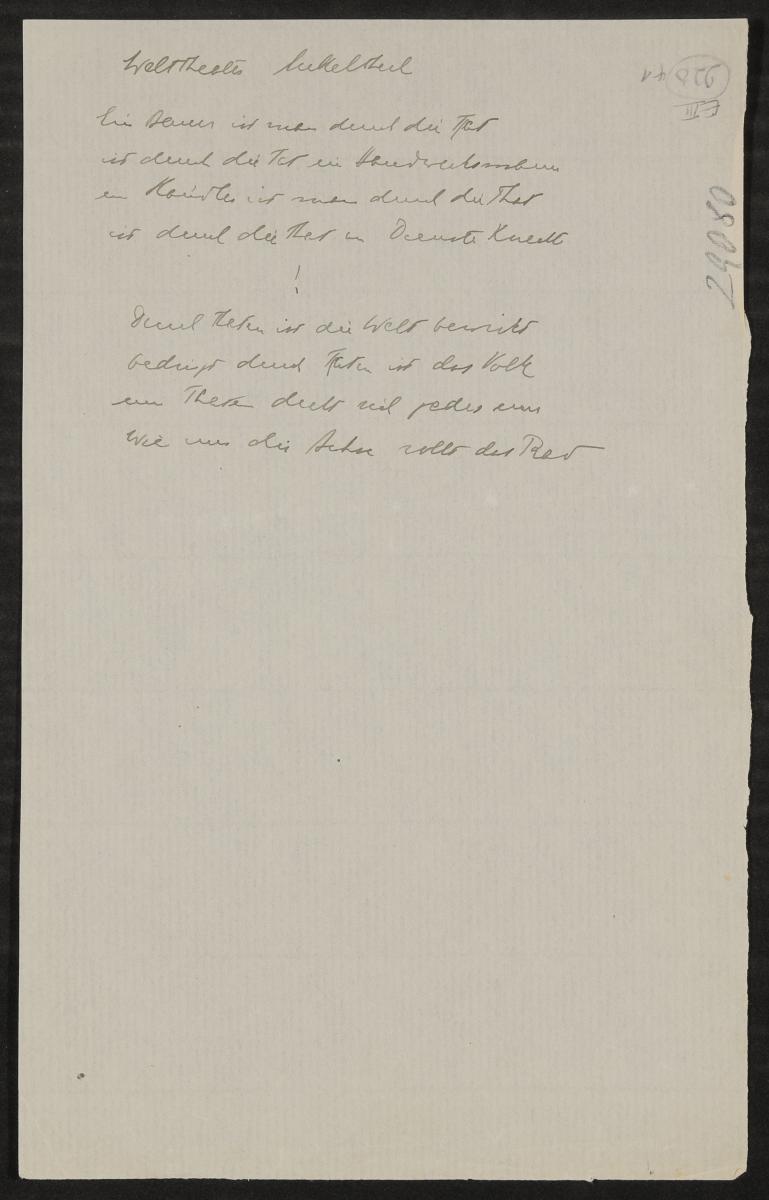 Welttheater Mittelteil
Ein Bauer ist man durch die That
ist durch die Tat ein Handwerksmann
ein Händler ist man durch die That
ist durch die That ein Dienste Knecht
!
Durch Thaten ist die Welt bewirkt
bedingt durch Thaten ist das Volk
um Thaten dreht sich jedes um
Wie um die Achse rollt das Rad
E III
220 41
29080